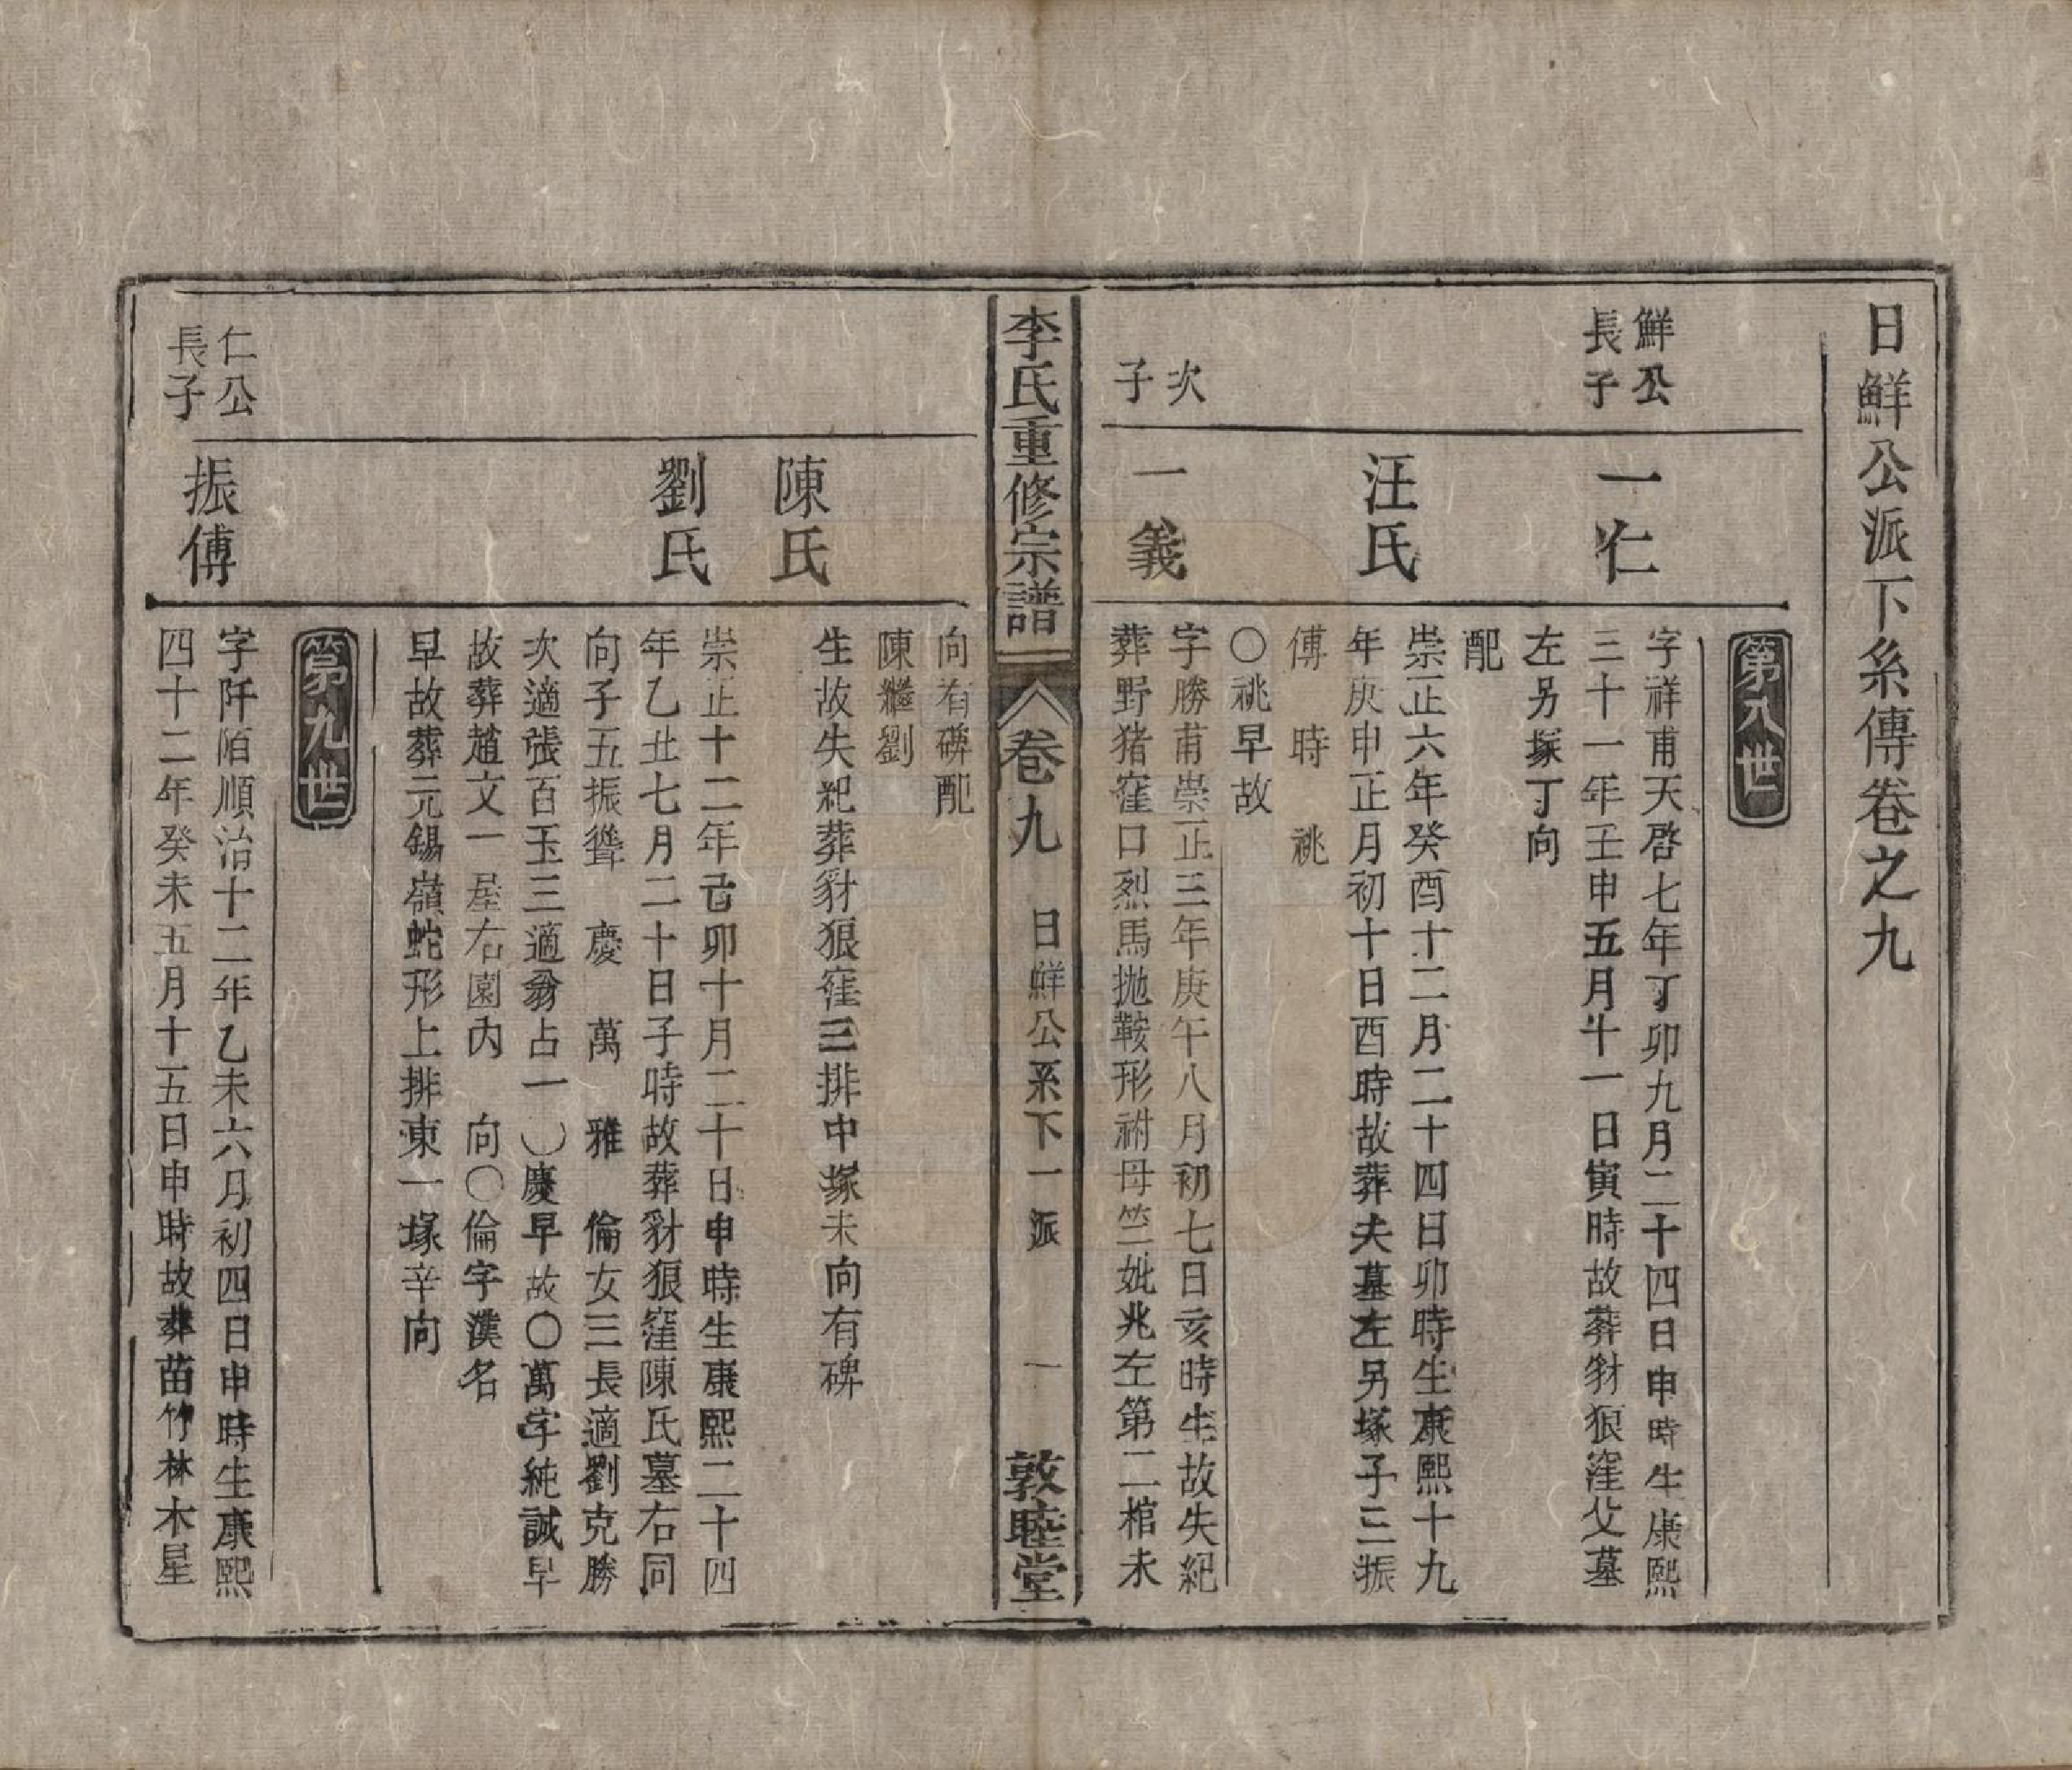 日鮮公派下系傳卷之九
第八世
鮮公
長子
一仁
字祥甫天啓七年丁卯九月二十四日申時生康熙
三十一年壬申五月十一日寅時故葬豺狼窪父墓
左另塚丁向
配
汪氏
崇正六年癸酉十二月二十四日卯時生康熙十九
年庚申正月初十日酉時故葬夫墓左另塚子三振
傅 時 祧
〇祧早故
次
子
一義
字勝甫崇正三年庚午八月初七日亥時生故失紀
葬野猪窪口烈馬拋鞍形祔母竺妣兆左第二棺未
李氏重修宗譜
卷九
日鮮公系下一派
一
敦睦堂
向有碑配
陳繼劉
陳氏
生故失紀葬豺狼窪三排中塚未向有碑
劉氏
崇正十二年己卯十月二十日申時生康熙二十四
年乙丑七月二十日子時故葬豺狼窪陳氏墓右同
向子五振聳 慶 萬 雅 倫女三長適劉克勝
次適張百玉三適翁占一〇慶早故〇萬字純誠早
故葬趙文一屋右園內 向〇倫字漢名
早故葬元錫嶺蛇形上排東一塚辛向
第九世
仁公
長子
振傅
字阡陌順治十二年乙未六月初四日申時生康熙
四十二年癸未五月十五日申時故葬苗竹林木星